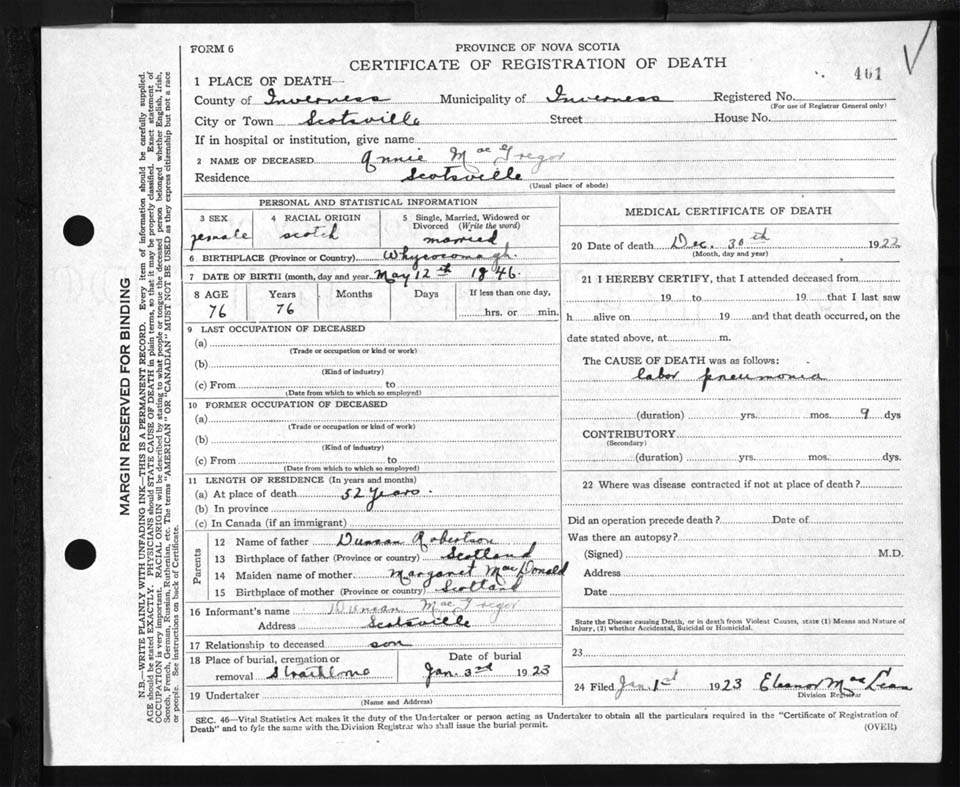 FORM 6
PROVINCE OF NOVA SCOTIA
CERTIFICATE OF REGISTRATION OF DEATH
401
1 PLACE OF DEATH—
County of Inverness Municipality of Inverness Registered No.
(For use of Registrar General only)
City or Town Scotsville Street House No.
If in hospital or institution, give name
2 NAME OF DECEASED Annie MacGregor
Residence Scotsville
(Usual place of abode)
PERSONAL AND STATISTICAL INFORMATION
3 SEX
female
4 RACIAL ORIGIN
scotch
5 Single, Married, Widowed or
Divorced (Write the word)
married
6 BIRTHPLACE (Province or Country) Whycocomagh.
7 DATE OF BIRTH (month, day and year May 12th 1846.
8 AGE Years Months Days If less than one day,
76 76 hrs. or min.
9 LAST OCCUPATION OF DECEASED
(a)
(Trade or occupation or kind or work)
(b)
(Kind of industry)
(c) From to
(Date from which to which so employed)
10 FORMER OCCUPATION OF DECEASED
(a)
(Trade or occupation or kind of work)
(b)
(Kind of industry)
(c) From to
(Date from which to which so employed)
11 LENGTH OF RESIDENCE (In years and months)
(a) At place of death 52 Years.
(b) In province
(c) In Canada (if an immigrant)
Parents
12 Name of father Duncan Robertson
13 Birthplace of father (Province or country) Scotland
14 Maiden name of mother Margaret MacDonald
15 Birthplace of mother (Province or country) Scotland
16 Informant's name Duncan MacGregor
Address Scotsville
17 Relationship to deceased son
18 Place of burial, cremation or
removal Strathlorne
Date of burial
Jan. 3rd 1923
19 Undertaker
(Name and Address)
MEDICAL CERTIFICATE OF DEATH
20 Date of death Dec. 30th 1922
(Month, day and year)
21 I HEREBY CERTIFY, that I attended deceased from
19 to 19 that I last saw
h alive on 19 and that death occurred, on the
date stated above, at m.
The CAUSE OF DEATH was as follows:
labor pneumonia
(duration) yrs. mos. 9 dys
CONTRIBUTORY
(Secondary)
(duration) yrs. mos. dys.
22 Where was disease contracted if not at place of death?
Did an operation precede death? Date of
Was there an autopsy?
(Signed) M.D.
Address
Date
State the Disease causing Death, or in death from Violent Causes, state (1) Means and Nature of
Injury, (2) whether Accidental, Suicidal or Homicidal.
23
24 Filed Jan 1st 1923 Eleanor MacLean
Division Registrar
SEC. 46—Vital Statistics Act makes it the duty of the Undertaker or person acting as Undertaker to obtain all the particulars required in the "Certificate of Registration of
Death" and to fyle the same with the Division Registrar who shall issue the burial permit.
(OVER)
MARGIN RESERVED FOR BINDING
N.B.—WRITE PLAINLY WITH UNFADING INK—THIS IS A PERMANENT RECORD. Every item of information should be carefully supplied.
AGE should be stated EXACTLY. PHYSICIANS should STATE CAUSE OF DEATH in plain terms, so that it may be properly classified. Exact statement of
OCCUPATION is very important. RACIAL ORIGIN will be described by stating to what people or tongue the deceased person belonged whether English, Irish,
Scotch, French, German, Russian, Ruthenian, etc. The terms "AMERICAN" OR "CANADIAN" MUST NOT BE USED as they express citizenship but not a race
or people. See instructions on back of Certificate.